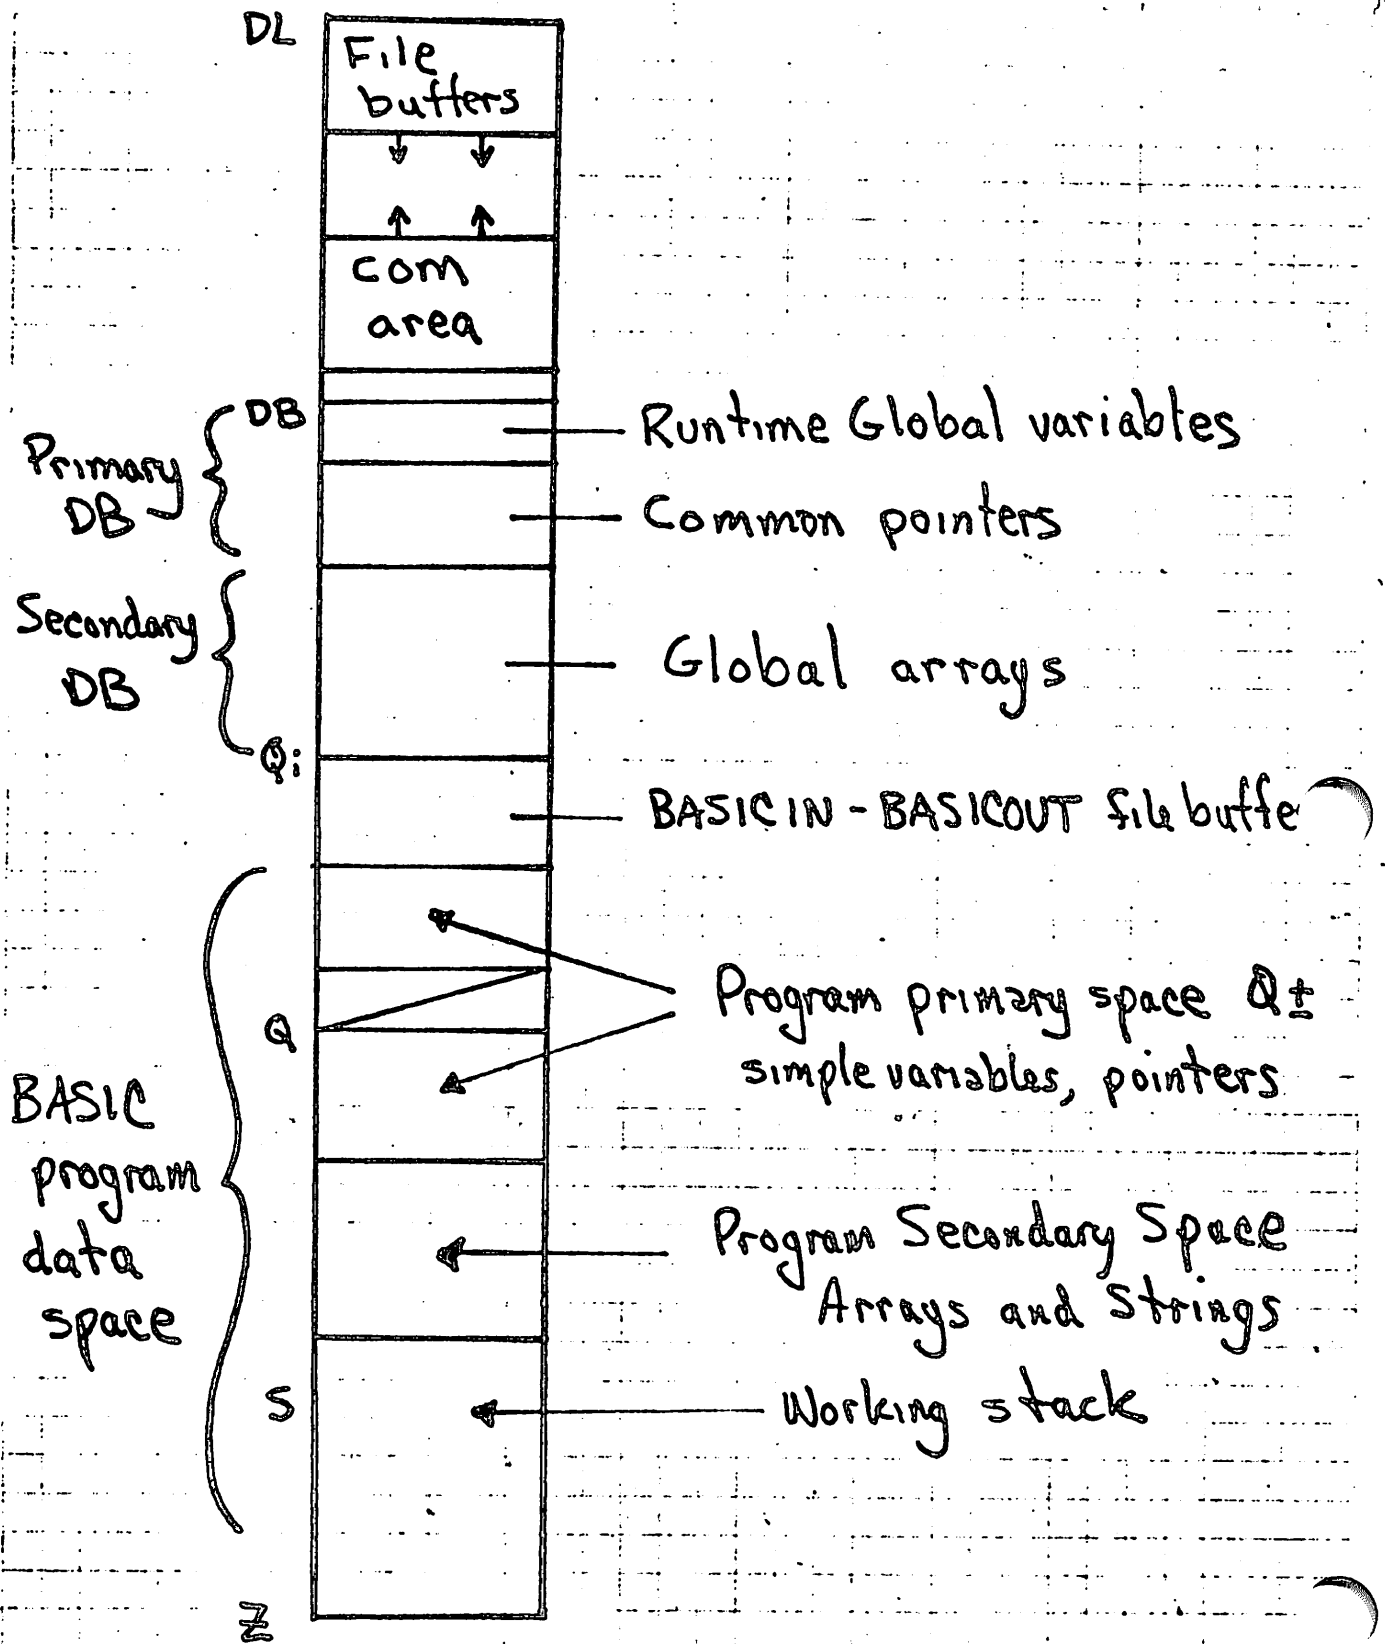 DL
File
buffers
com
area
DB
Primary
DB
Runtime Global variables
Common pointers
Secondary
DB
Global arrays
Qi
BASICIN - BASICOUT file buffe
Program primary space Q±
simple variables, pointers
Q
BASIC
program
data
space
Program Secondary Space
Arrays and Strings
S
Working stack
Z